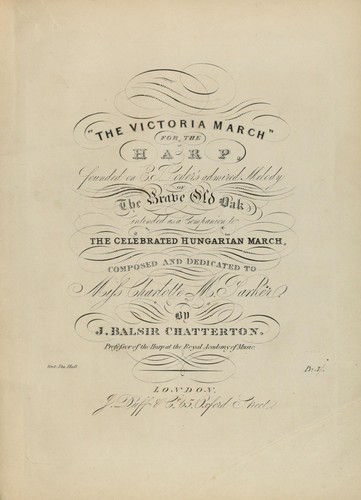 "THE VICTORIA MARCH"
FOR THE
HARP,
founded on E. Loder's admired Melody
OF
The Brave Old Oak
intended as a Companion to
THE CELEBRATED HUNGARIAN MARCH,
COMPOSED AND DEDICATED TO
Miss Charlotte M. Parker
BY
J. BALSIR CHATTERTON,
Professor of the Harp at the Royal Academy of Music.
Ent. Sta. Hall
Pr. 2/.
LONDON,
J. Duff & Co. 65, Oxford Street.